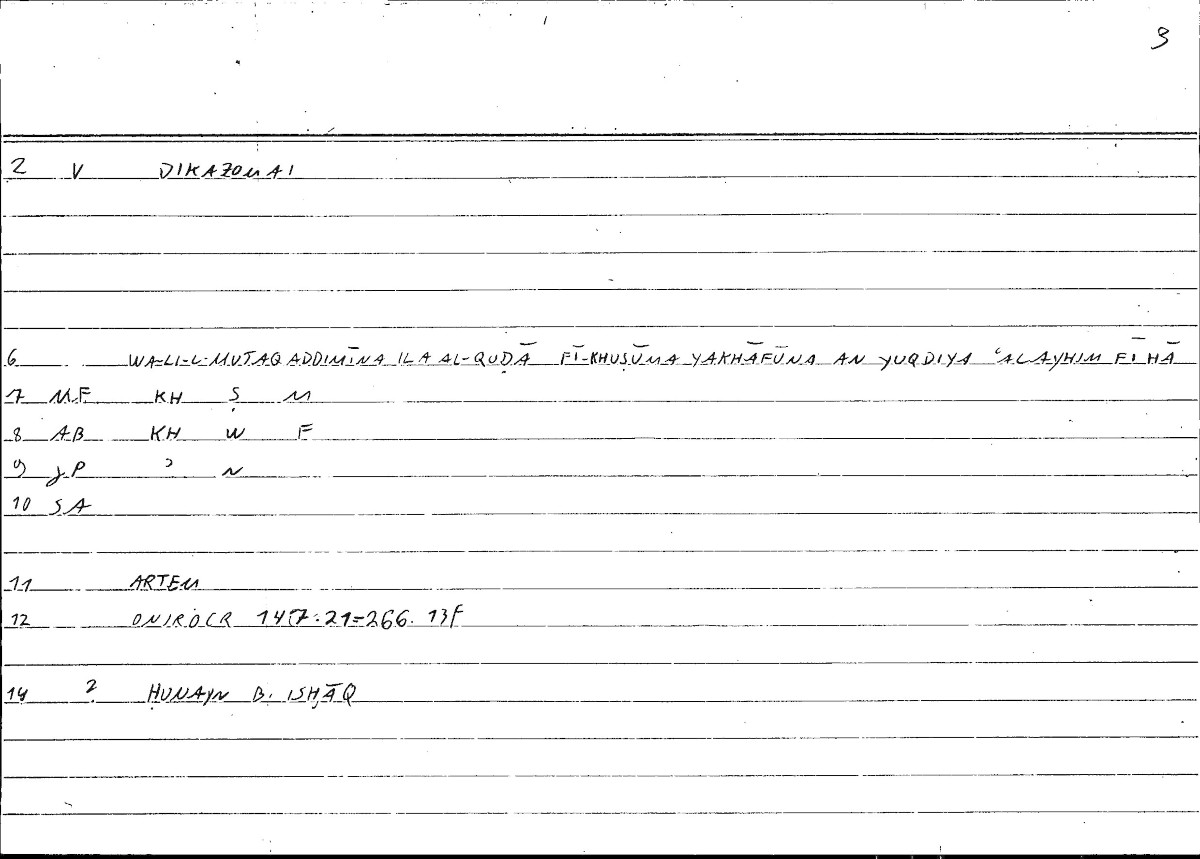 3
2 V DIKAZOMAI
6 WA-LI-L-MUTAQADDIMĪNA ILA AL-QUḌĀ FĪ-KHUṢŪMA YAKHĀFŪNA AN YUQDIYA ʿALAYHIM FĪHĀ
7 MF KH Ṣ M
8 AB KH W F
9 JP ʾ N
10 SA
11 ARTEM
12 ONIROCR 147:21=266.13f
14 ? ḤUNAYN B. ISḤĀQ